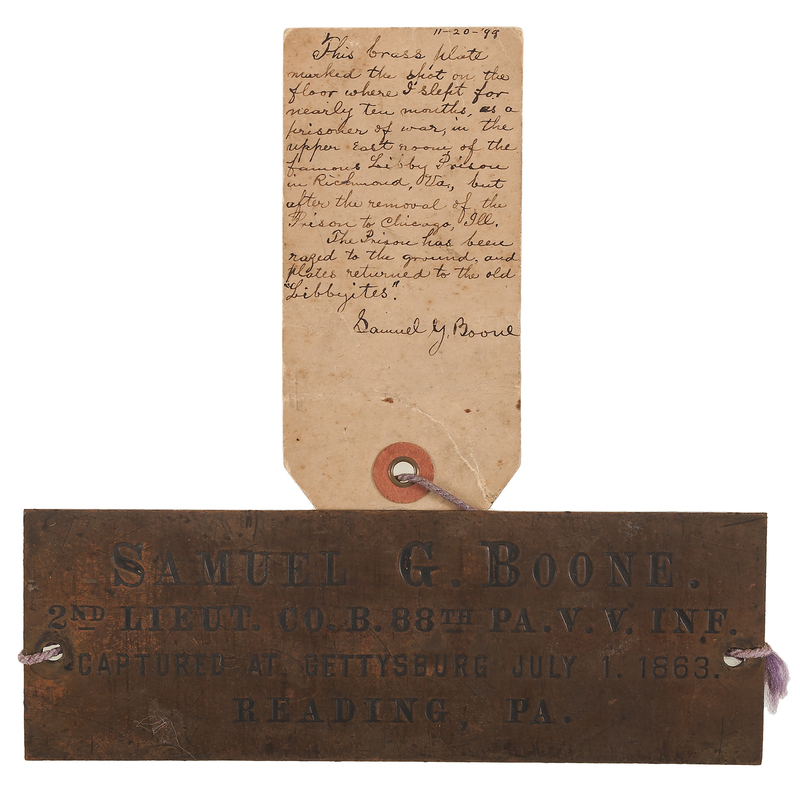 11-20-'99
This brass plate
marked the spot on the
floor where I slept for
nearly ten months, as a
prisoner of war, in the
upper East room of the
famous Libby Prison
in Richmond, Va., but
after the removal of the
Prison to Chicago, Ill.
The Prison has been
razed to the ground, and
plates returned to the old
"Libbyites".
Samuel G. Boone
SAMUEL G. BOONE.
2ND LIEUT. CO. B. 88TH PA. V. V. INF.
CAPTURED AT GETTYSBURG JULY 1. 1863.
READING, PA.